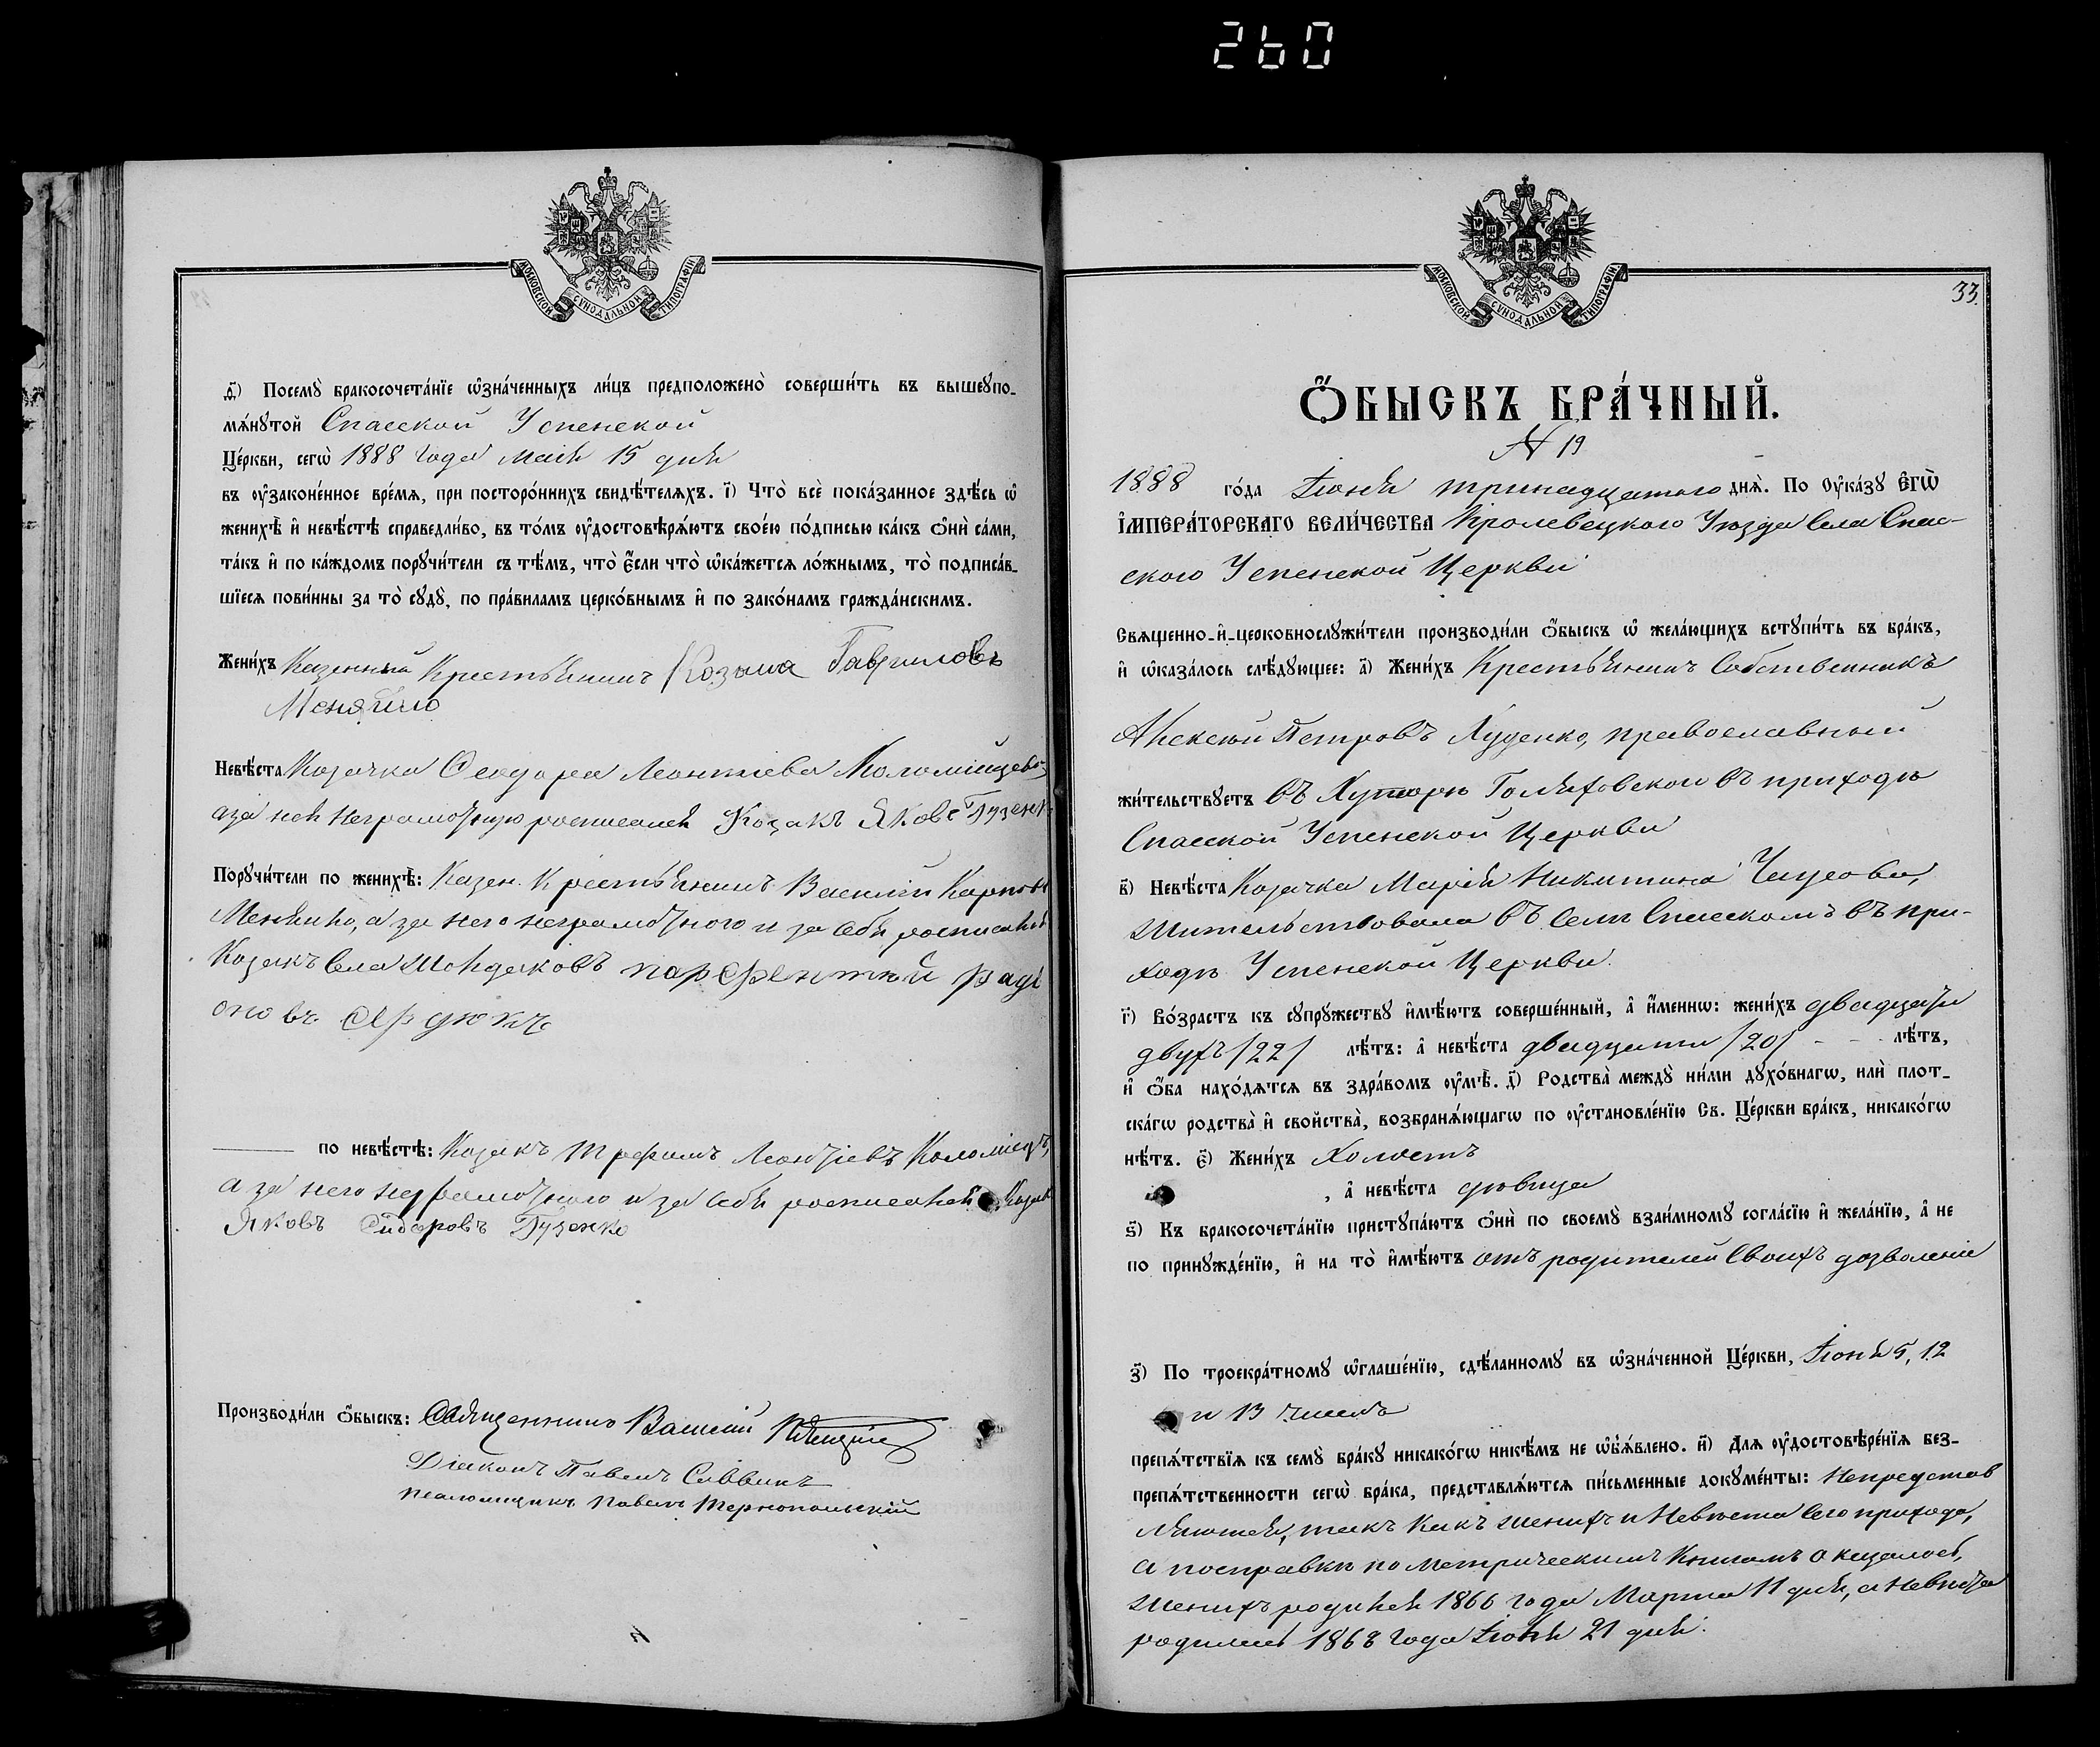 260
МОСКОВСКОЙ СѴНОДАЛЬНОЙ ТИПОГРАФІИ
д҃) Посемꙋ̀ бракосочета́нїе ѡ҆зна́ченныхъ ли́цъ предположено̀ соверши́ть въ вышеꙋпо-
мѧ́нꙋтой Спасской Успенской
Це́ркви, сегѡ̀ 1888 года мая 15 дня
въ ᲂу҆зако́ненное вре́мѧ, при посторо́ннихъ свидѣ́телѧхъ. і҃) Что̀ всѐ пока́занное здѣ́сь ѡ҆
женихѣ̀ и҆ невѣ́стѣ справедли́во, въ то́мъ ᲂу҆достовѣрѧ́ютъ свое́ю по́дписью ка́къ ѻ҆нѝ са́ми,
та́къ и҆ по ка́ждомъ порꙋчи́тели съ тѣ́мъ, что̀ є҆́сли что̀ ѡ҆ка́жетсѧ ло́жнымъ, то̀ подписа́в-
шїесѧ пови́нны за то̀ сꙋдꙋ̀, по пра́виламъ церко́внымъ и҆ по зако́намъ гражда́нскимъ.
Жени́хъ Казенный Крестьянинъ Козьма Гавриловъ
Меняйло
Невѣ́ста Козачка Ѳеодора Леонтіева Коломійцева
а за нея неграмотную росписался Козакъ Яковъ Гузенк
Порꙋчи́тели по женихѣ̀: Казен. Крестьянинъ Василій Карповъ
а за него неграмотнаго и за себя росписался
Козакъ села парфентий радi
оновъ сердюкъ
по невѣ́стѣ: Козакъ Трофимъ Леонтіевъ Коломіецъ,
а за него неграмотнаго и за себя росписался Козак
Яковъ Сидоровъ Гузенко
Производи́ли ѻ҆́быскъ: Священникъ Василій
Діаконъ Павелъ Саввинъ
псаломщикъ Павелъ Тернопольскій
МОСКОВСКОЙ СѴНОДАЛЬНОЙ ТИПОГРАФІИ
33.
Ѻ҆́БЫСКЪ БРА́ЧНЫЙ.
N 19
1888 го́да Іюня тринадцатаго днѧ̀. По Оу҆ка́зꙋ Є҆ГѠ̀
І҆МПЕРА́ТОРСКАГО ВЕЛИ́ЧЕСТВА Кролевецкаго Уѣзда Села Спас-
скаго Успенской Церкви
Свѧщенно-и҆-церковнослꙋжи́тели производи́ли ѻ҆́быскъ ѡ҆ жела́ющихъ встꙋпи́ть въ бра́къ,
и҆ ѡ҆каза́лось слѣ́дꙋющее: а҃) Жени́хъ Крестьянинъ Собственникъ
Алексѣй Петровъ Худенко, православный
жи́тельствꙋетъ въ Хуторѣ Голяховскомъ въ приходѣ
Спасской Успенской Церкви
в҃) Невѣ́ста Козачка Марія Никитина
жительствовала въ Селѣ Спасскомъ въ при-
ходѣ Успенской Церкви.
г҃) Во́зрастъ къ сꙋпрꙋ́жествꙋ и҆мѣ́ютъ соверше́нный, а҆ и҆́меннѡ: жени́хъ двадцати
двухъ /22/ лѣ́тъ: а҆ невѣ́ста двадцати /20/ - - - лѣ́тъ,
и҆ ѻ҆́ба нахо́дѧтсѧ въ здра́вомъ ᲂу҆мѣ̀. д҃) Родства̀ междꙋ̀ ни́ми дꙋхо́внагѡ, илѝ плот-
ска́гѡ родства̀ и҆ свойства̀, возбранѧ́ющагѡ по ᲂу҆становле́нїю Св. Це́ркви бра́къ, никако́гѡ
нѣ́тъ. є҃) Жени́хъ Холостъ
, а҆ невѣ́ста дѣвица
ѕ҃) Къ бракосочета́нїю пристꙋпа́ютъ ѻ҆нѝ по своемꙋ̀ взаи́мномꙋ согла́сїю и҆ жела́нїю, а҆ не
по принꙋжде́нїю, и҆ на то̀ и҆мѣ́ютъ отъ родителей своихъ дозволеніе
з҃) По троекра́тномꙋ ѡ҆глаше́нїю, сдѣ́ланномꙋ въ ѡ҆зна́ченной Це́ркви, Іюня 5, 12
и 13 числъ
препѧ́тствїѧ къ семꙋ̀ бра́кꙋ никако́гѡ никѣ́мъ не ѡ҆б̾ѧ́влено. и҃) Длѧ ᲂу҆достовѣре́нїѧ без-
препѧ́тственности сегѡ̀ бра́ка, представлѧ́ютсѧ пи́сьменные докꙋме́нты: Непредстав
ляются, такъ какъ женихъ и невѣста сего прихода,
а посправкѣ по метрическимъ книгамъ оказалось,
женихъ родился 1866 года Марта 11 дня, а невѣста
родилась 1868 года Іюня 21 дня.